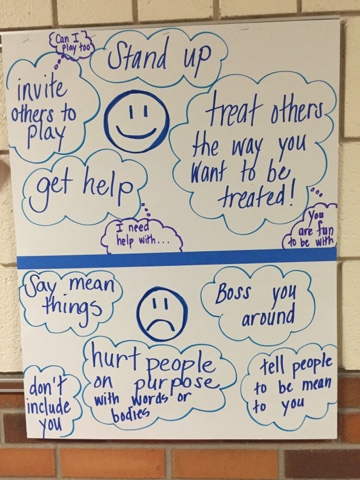 Can I
play too
Stand up
invite
others to
play
treat others
the way you
want to be
treated!
get help
I need
help with...
You
are fun
to be with
Say mean
things
Boss you
around
hurt people
on purpose
with words or
bodies
don't
include
you
tell people
to be mean
to you